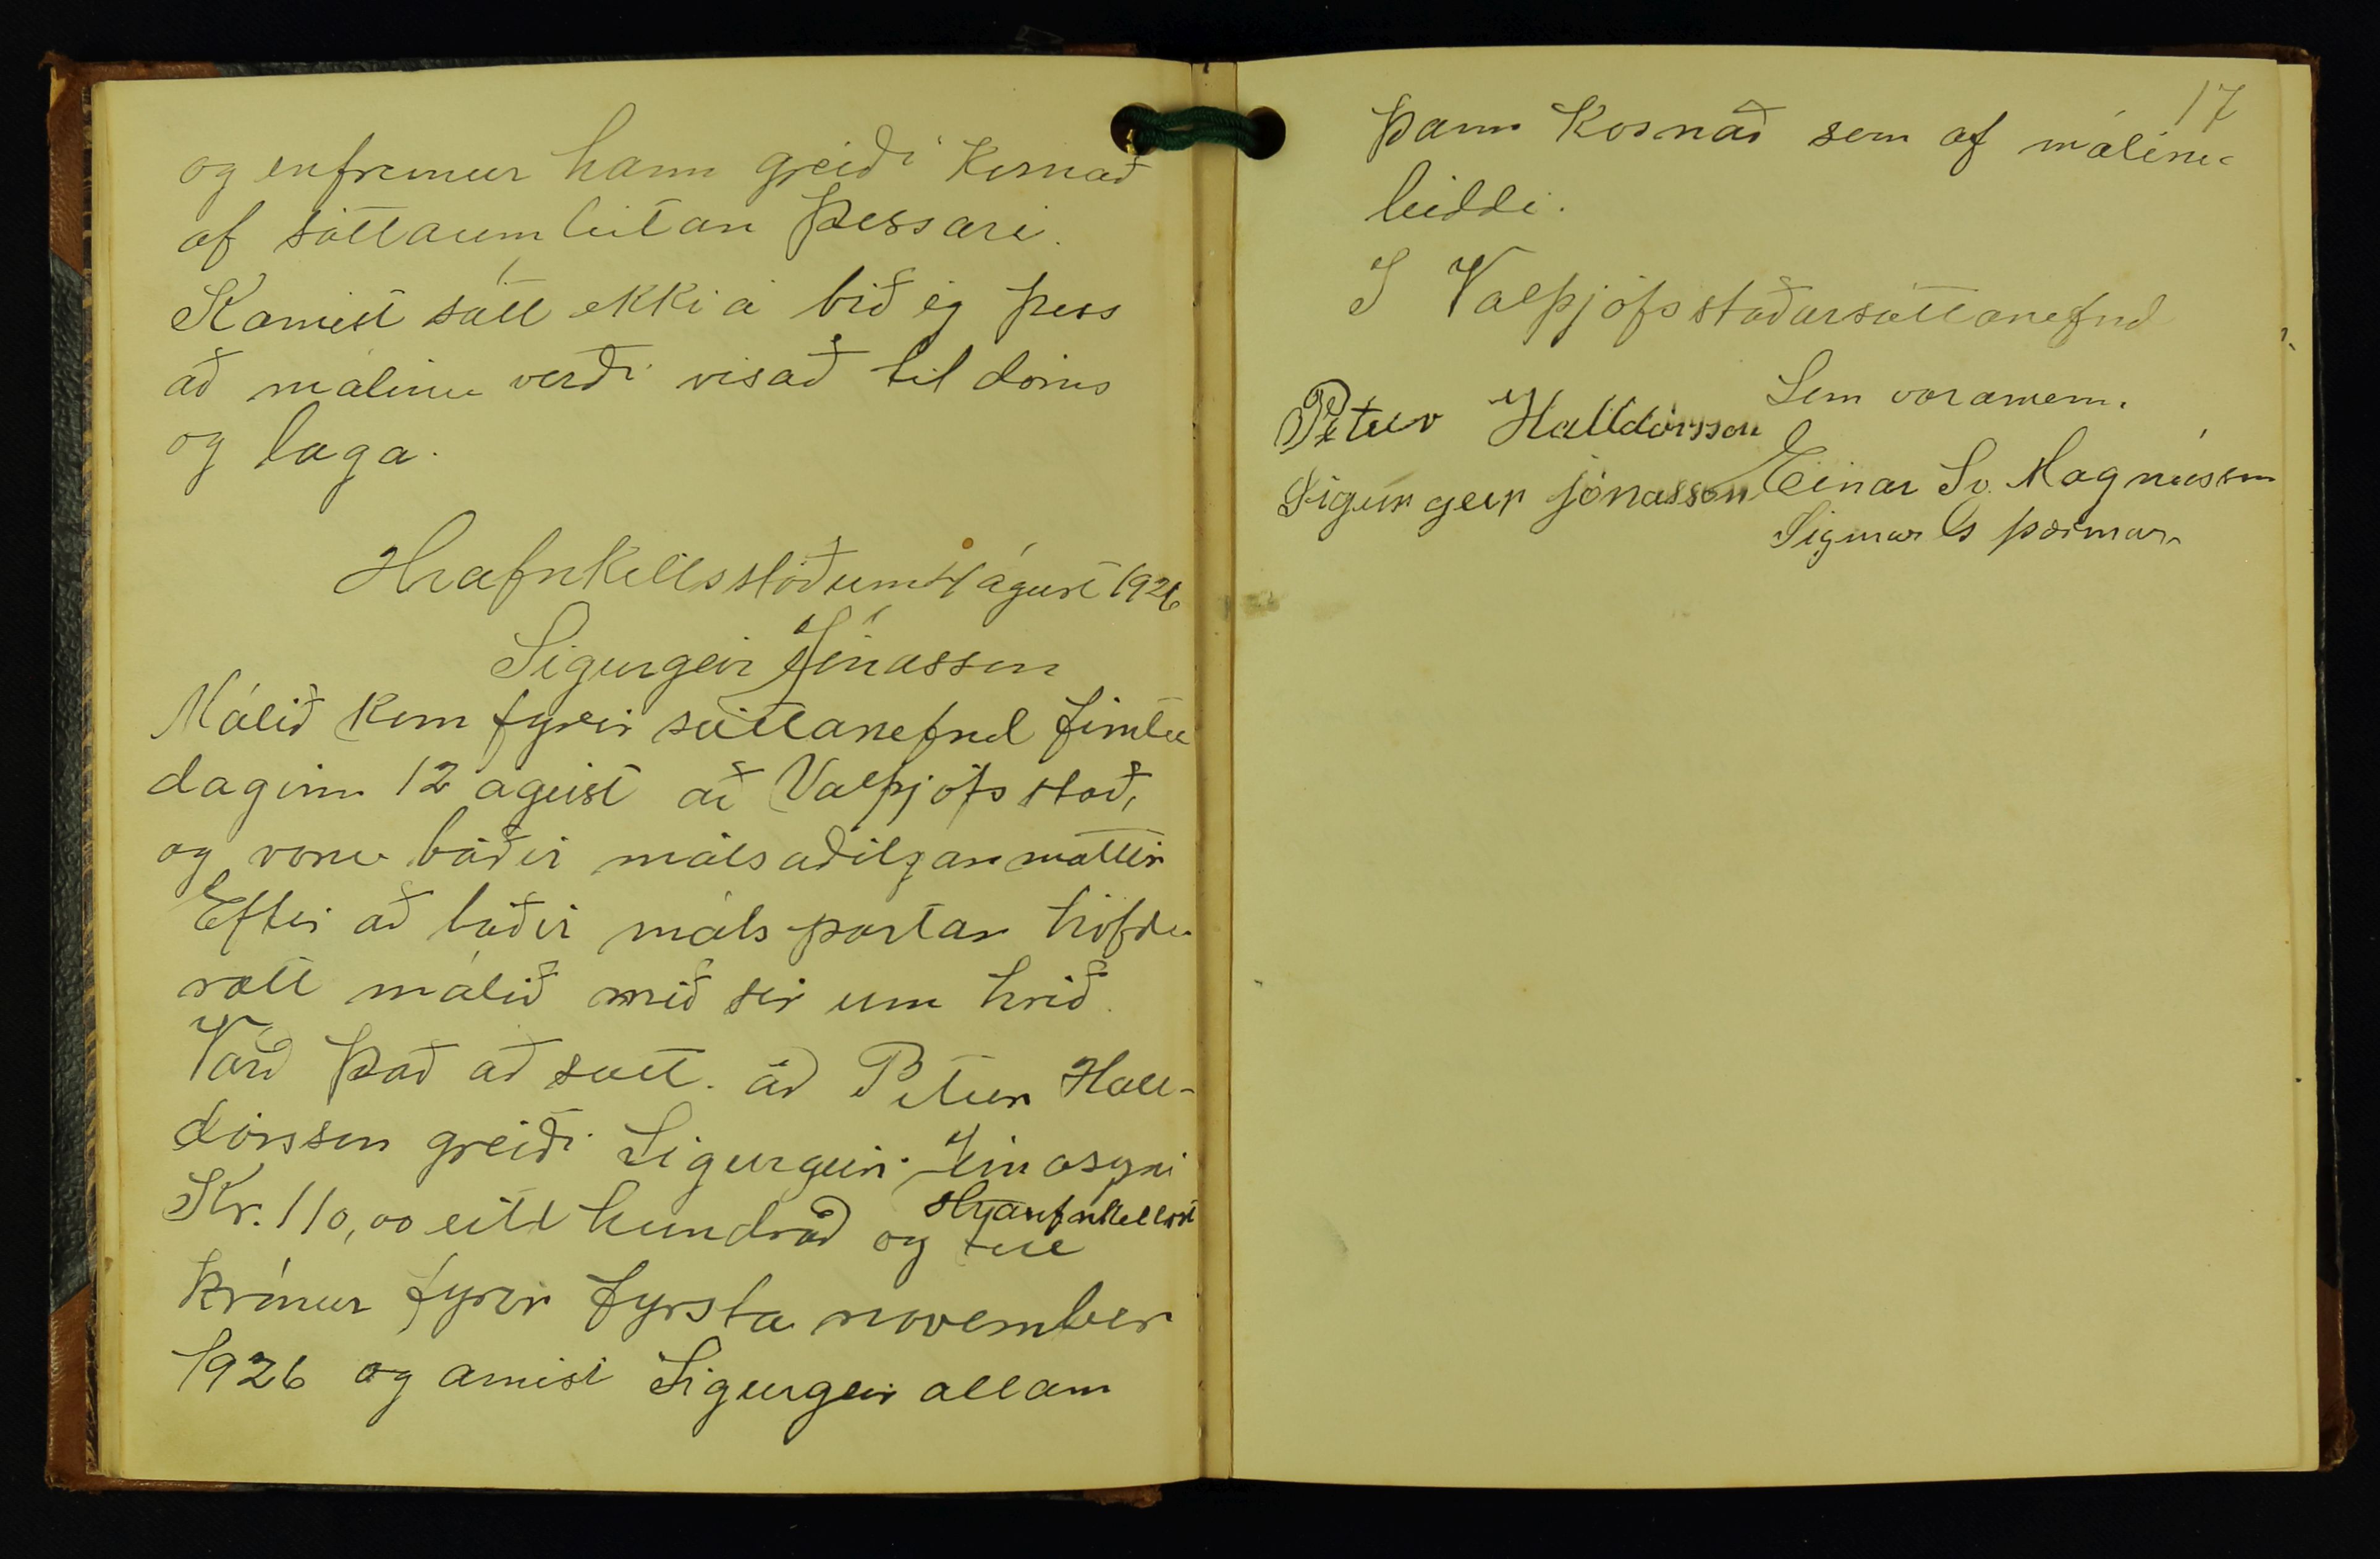 og enfremur hann greiði kosnað
af sáttaumleitan þessari.
Komist sátt ekki á bið ég þess
að málinu verði vísað til dóms
og laga.
Hrafnkellsstöðum 4 ágúst 1926
Sigurgeir Jónasson
Málið kom fyrir sáttanefnd fimtu
daginn 12 ágúst að Valþjófsstað,
og voru báðir málsaðiljar mættir
Eftir að báðir málspartar höfðu
rætt málið með sér um hríð.
Varð það að sátt. að Pétur Hall-
dórsson greiði Sigurgeir Jónassyni
Hrafnkellsst
Kr. 110,00 eitt hundrað og tíu
krónur fyrir fyrsta november
1926 og annist Sigurgeir allann
17
þann kosnað sem af málinu
leiddi.
Í Valþjófsstaðarsáttanefnd
Sem varamenn.
Pétur Halldórsson
Einar Sv. Magnússon
Sigurgeir jónasson
Sigmar G þormar